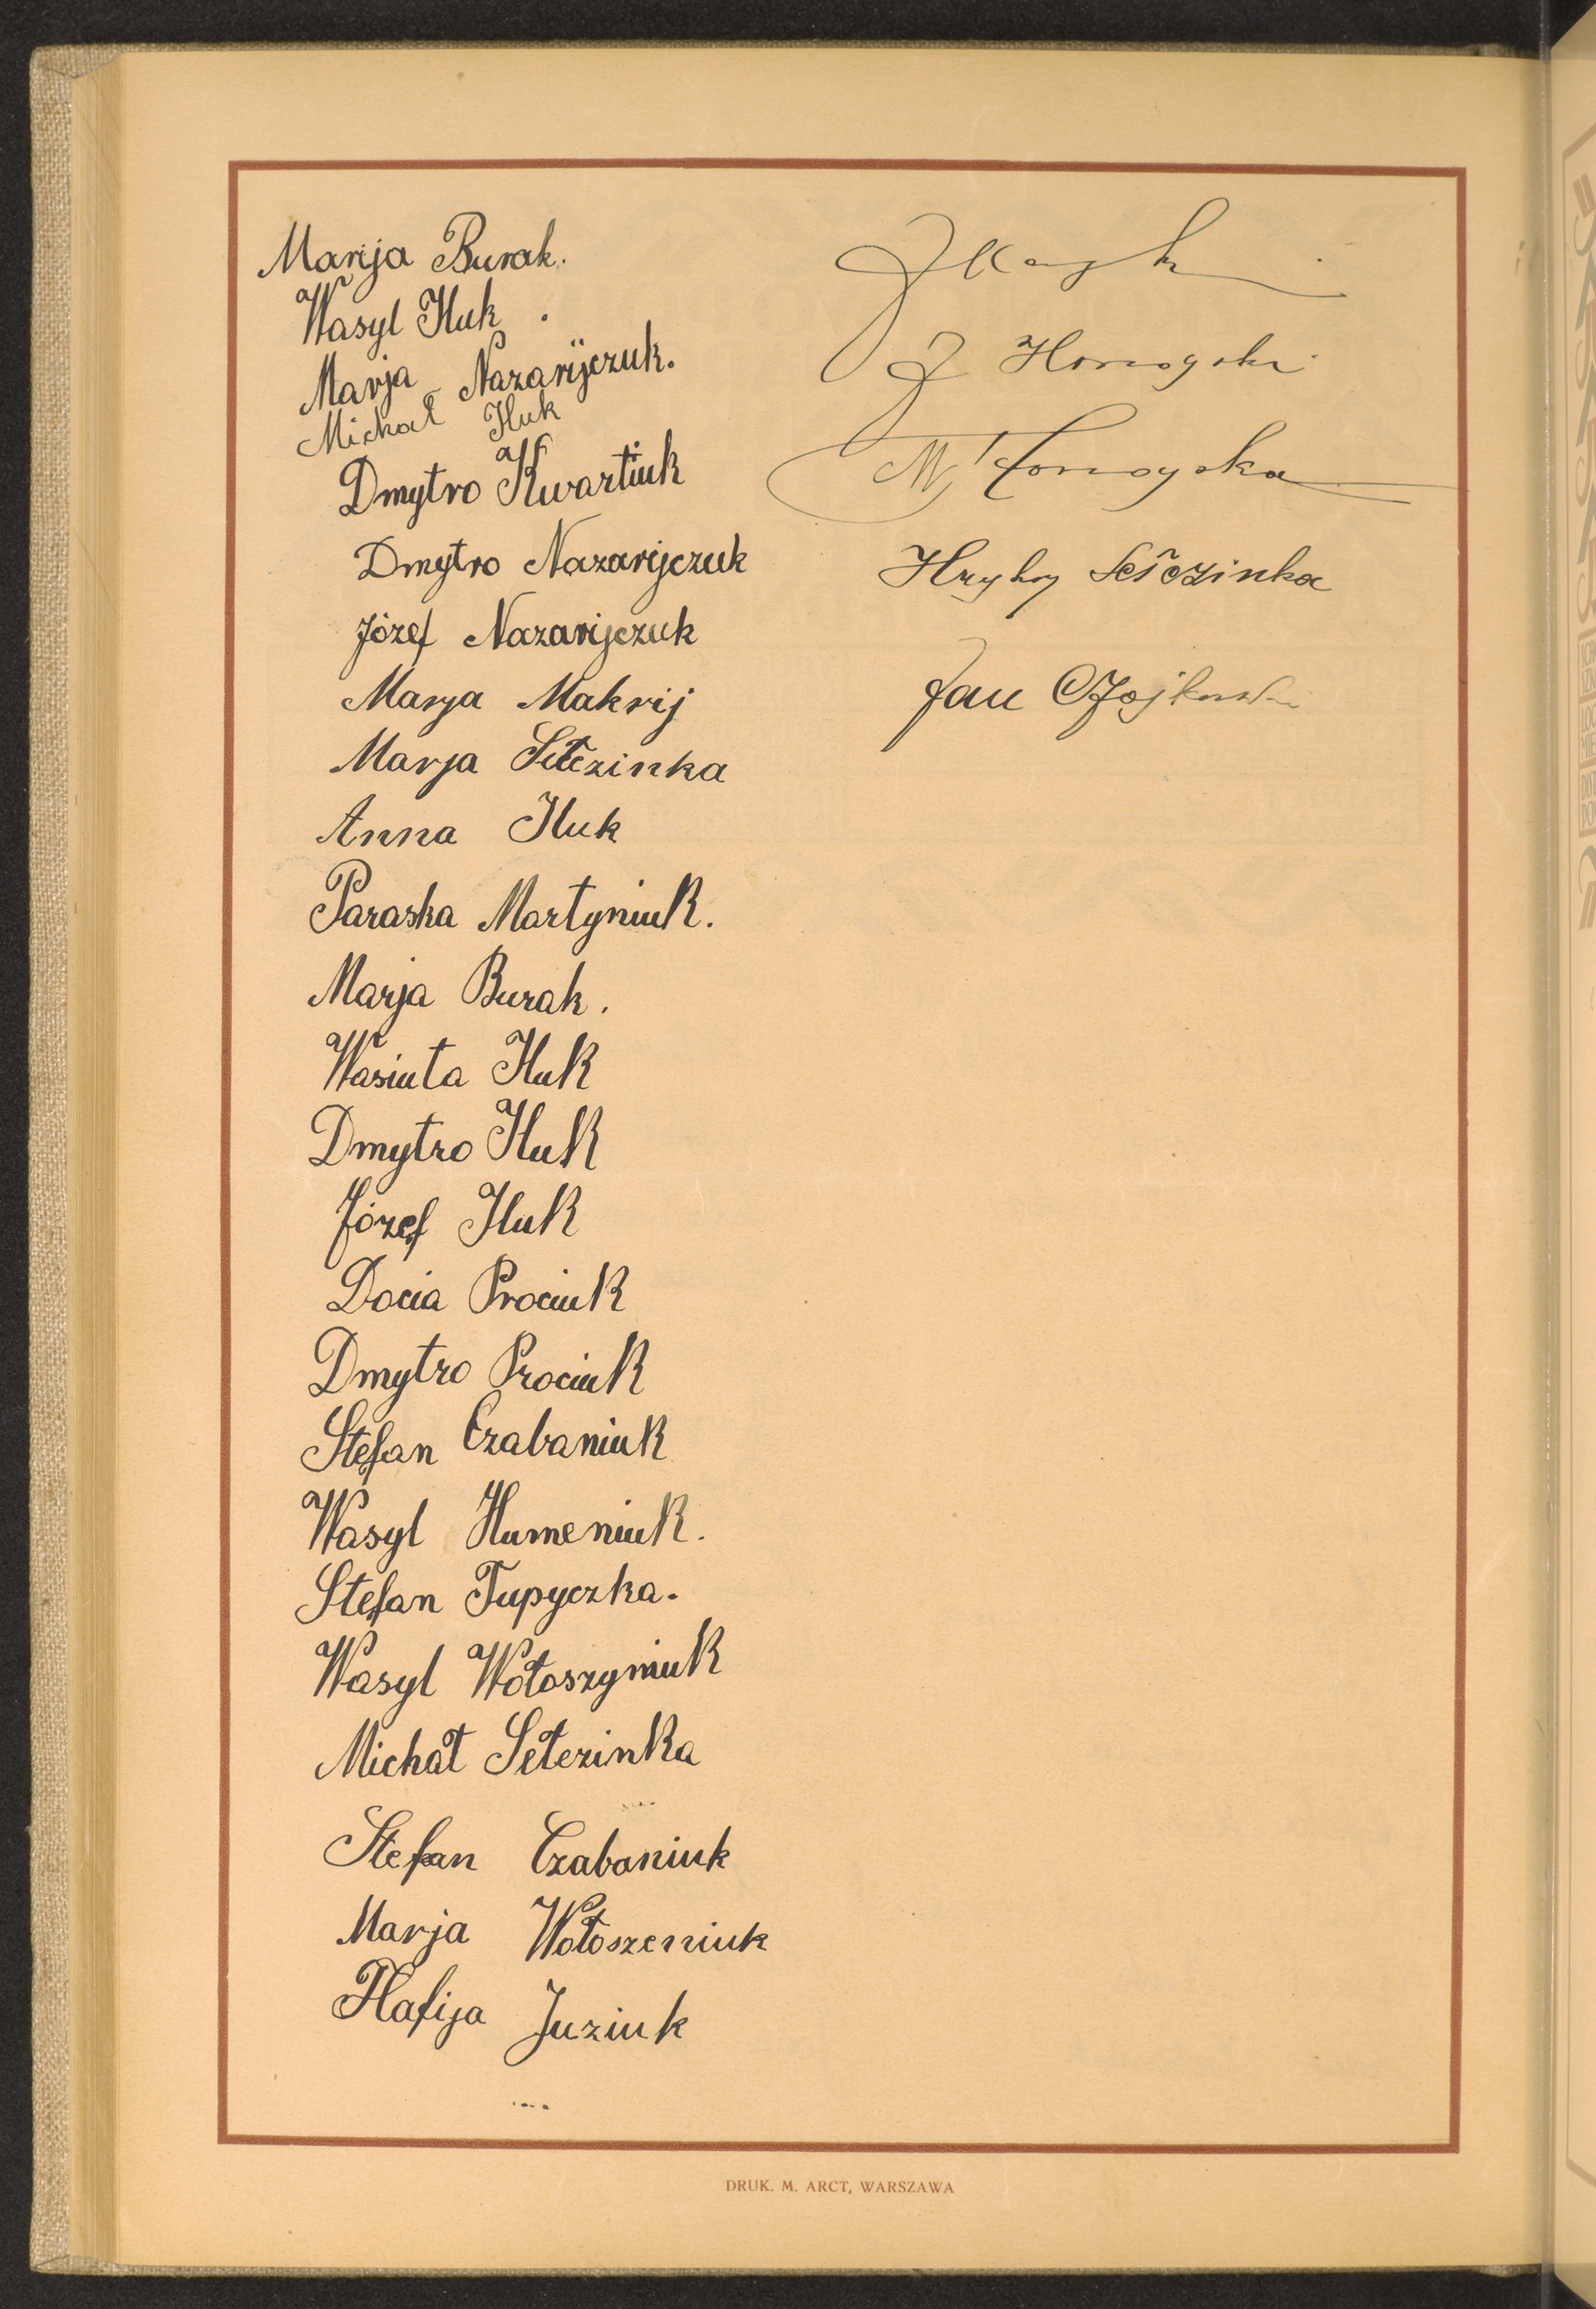 Marija Burak.
Wasyl Huk .
Marja Nazarijczuk.
Michał Huk
Dmytro Kwartiuk
Dmytro Nazarijczuk
Józef Nazarijczuk
Marja Makrij
Marja
Anna Huk
Paraska Martyniuk.
Marja Burak.
Wasiuta Huk
Dmytro Huk
Józef Huk
Docia Prociuk
Dmytro Prociuk
Stefan Czabaniuk
Wasyl Humeniuk.
Stefan Tupyczka.
Wasyl Wołoszyniuk
Michał
Stefan Czabaniuk
Marja Wołoszeniuk
Hafija Juziuk
Jan
DRUK. M. ARCT, WARSZAWA